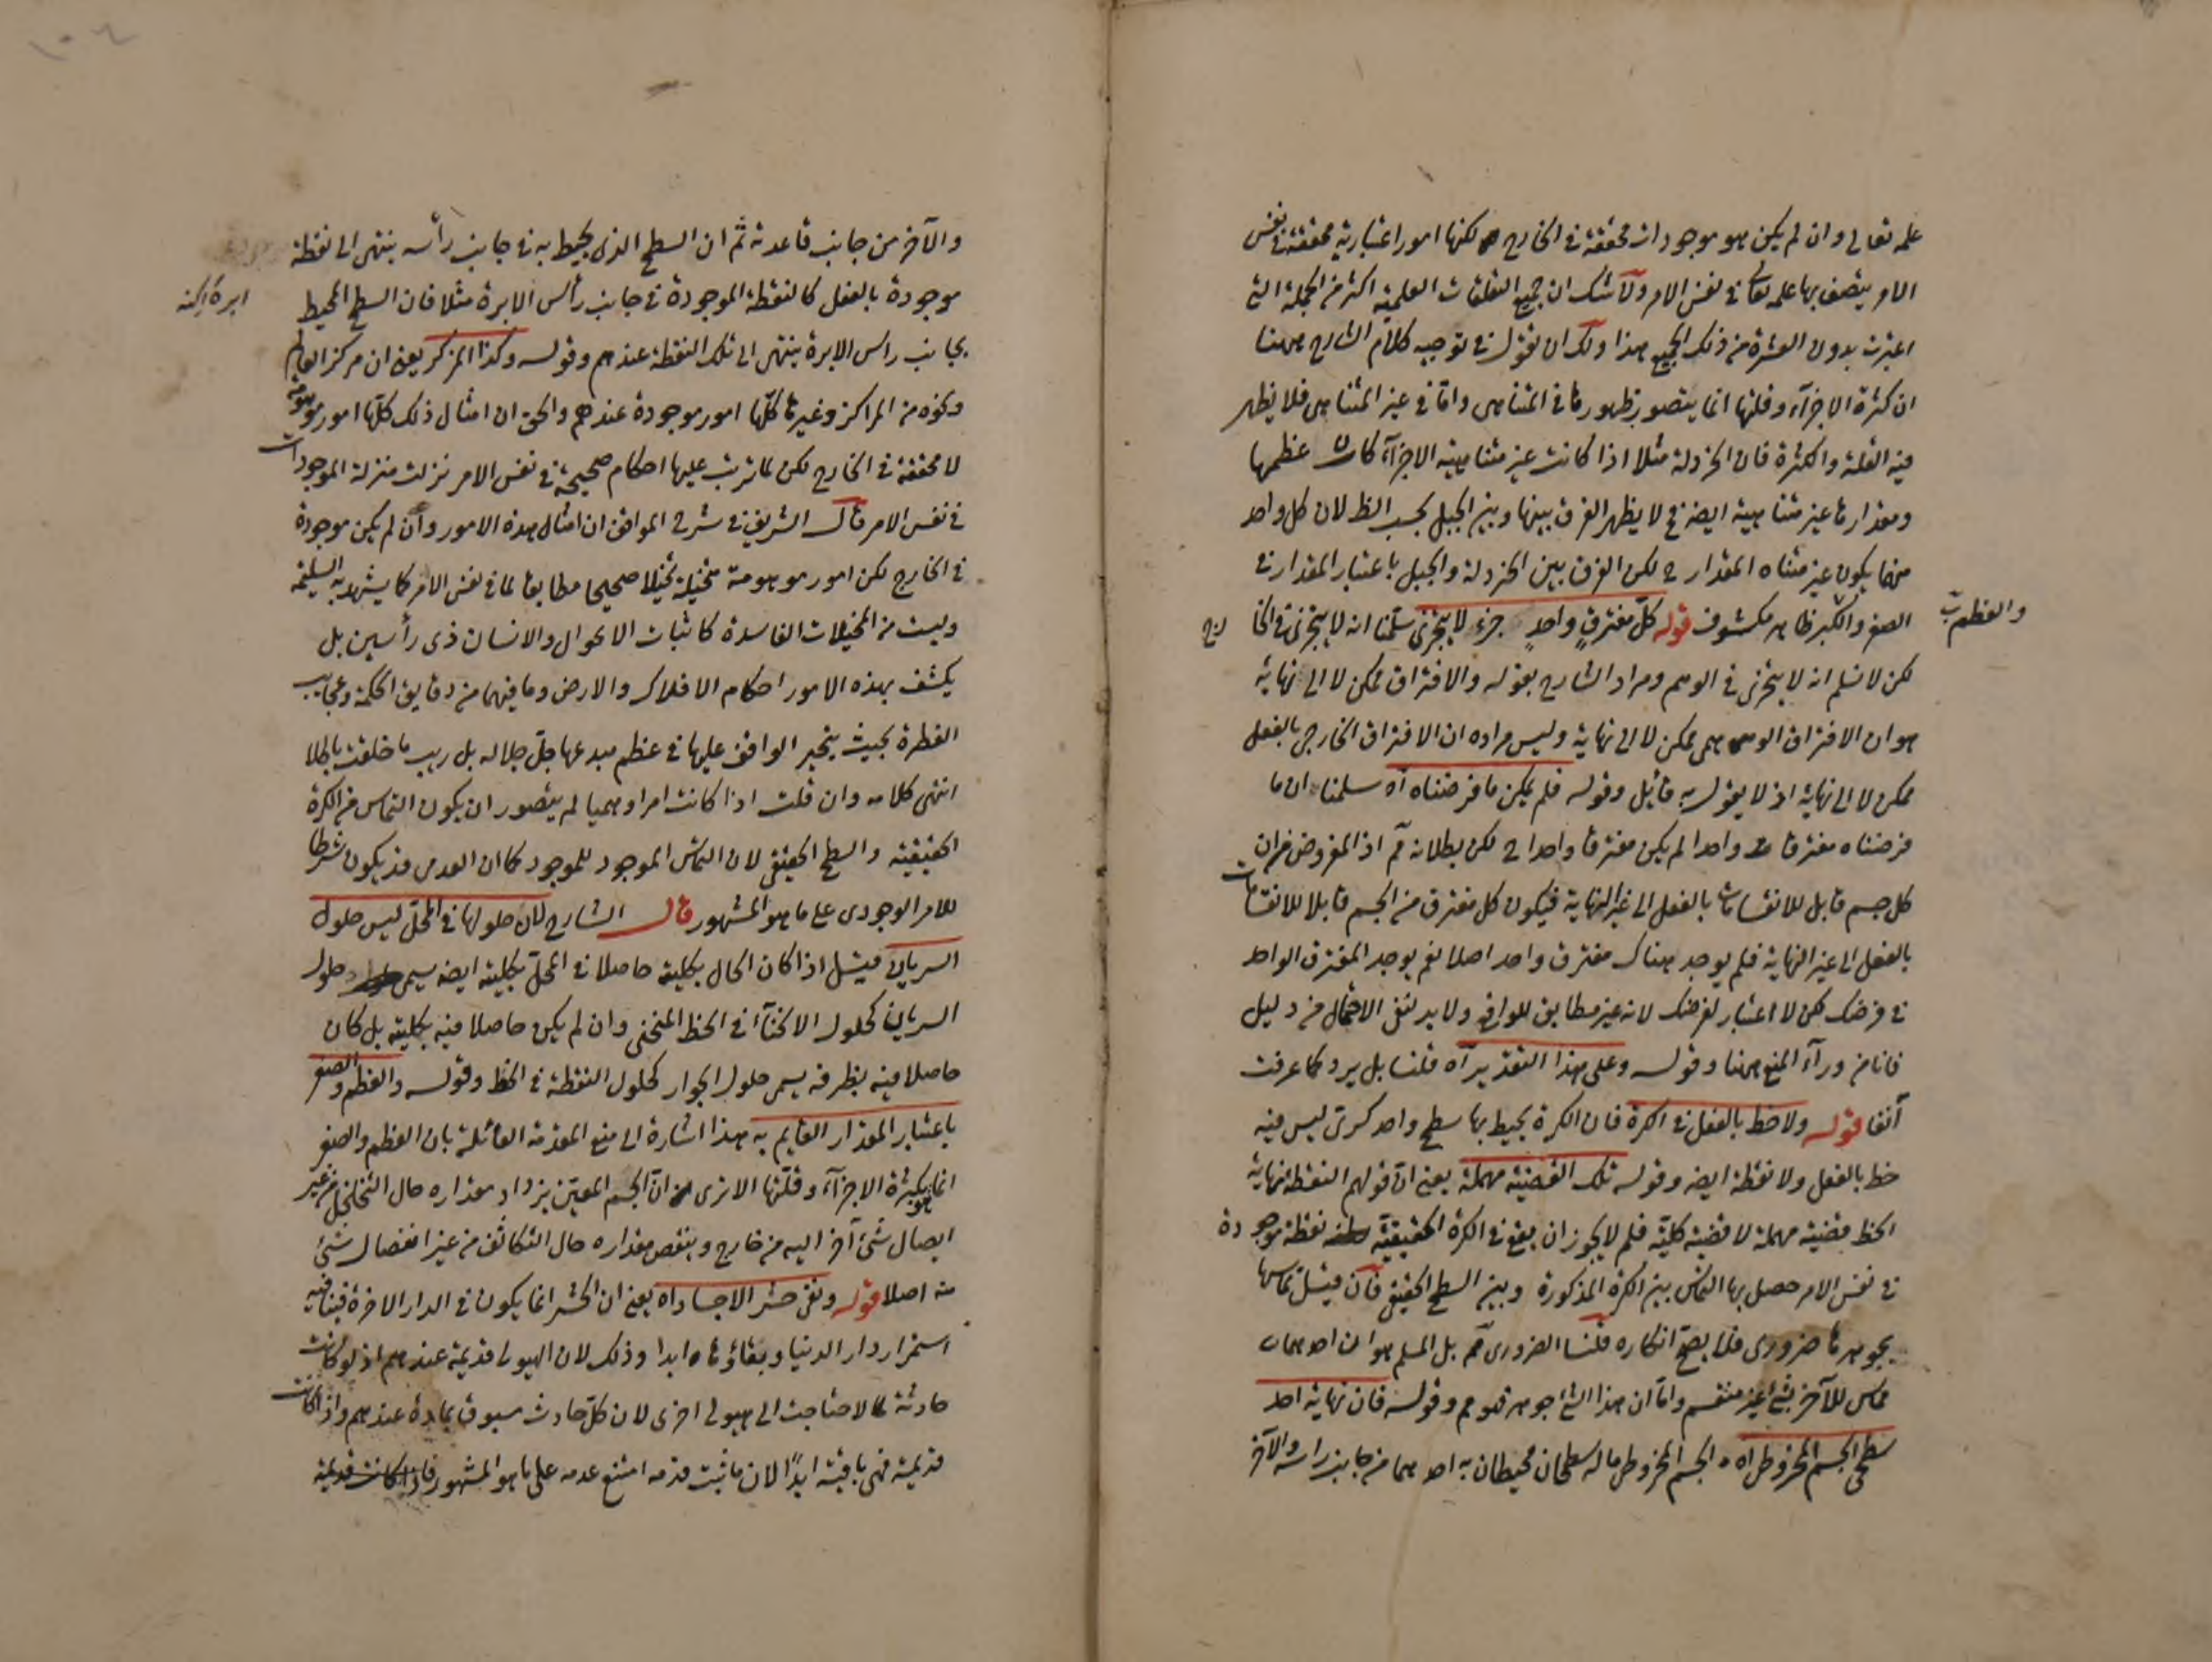 علمه تعالى وان لم يكن هو موجودات محققة في الخارج لكنها امور اعتبارية محققة في نفس
الامر يتصف بها علمه تعالى في نفس الامر ولا شك ان جميع التعلقات العلمية اكثر من الجملة التي
اعتبرت بدون العشرة من ذلك الجميع هذا ولك ان تقول في توجيه كلام الشارح ههنا
ان كثرة الاجزآء وقلتها انما يتصور ظهورها في المتناهى واما في غير المتناهى فلا يظهر
فيه القلة والكثرة فان الخردلة مثلا اذا كانت غير متناهية الاجزآء كان عظمها
ومقدارها غير متناهية ايضا فح لا يظهر الفرق بينها وبين الجبل بحسب الظ لان كل واحد
منهما يكون غير متناه المقدار ح لكن الفرق بين الخردلة والجبل باعتبار المقدار في
الصغر والكبر ظاهر مكشوف قوله كل مفترق واحد جزء لا يتجزى سلمنا انه لا يتجزى في الخا رج
والعظم
لكن لا نسلم انه لا يتجزى في الوهم ومراد الشارح بقوله والافتراق ممكن لا الى نهاية
هو ان الافتراق الوهمى ممكن لا الى نهاية وليس مراده ان الافتراق الخارجى بالفعل
ممكن لا الى نهاية اذ لا يقول به قائل وقوله فلم يكن ما فرضناه اه سلمنا ان ما
فرضناه مفترقا واحدا لم يكن مفترقا واحدا ح لكن بطلانه مم اذ المفروض ان
كل جسم قابل للانقسامات بالفعل الى غير النهاية فيكون كل مفترق من الجسم قابلا للانقسامات
بالفعل الى غير النهاية فلم يوجد هناك مفترق واحد اصلا نعم يوجد المفترق الواحد
في فرضك لكن لا اعتبار لفرضك لانه غير مطابق للواقع ولا بد لنفى الاحتمال من دليل
فانا من ورآء المنع ههنا وقوله وعلى هذا التقدير اه قلنا بل يرد كما عرفت
آنفا قوله ولا خط بالفعل في الكرة فان الكرة يحيط بها سطح واحد كرى ليس فيه
خط بالفعل ولا نقطة ايضا وقوله تلك القضية مهملة يعنى ان قولهم النقطة نهاية
الخط قضية مهملة لا قضية كلية فلم لا يجوز ان يقع في الكرة الحقيقية نقطة موجودة
في نفس الامر حصل بها التماس بين الكرة المذكورة وبين السطح الحقيقى فان قيل تماسها
بجوهرها ضرورى فلا يصح انكاره قلنا الضرورى مم بل المسلم هو ان احدهما
مماس للآخر بشئ غير منقسم واما ان هذا الشئ جوهر فهو مم وقوله فان نهاية احد
سطحى الجسم المخروطى اه الجسم المخروطى ماله سطحان محيطان به احدهما من جانب رأسه والآخر
والآخر من جانب قاعدته ثم ان السطح الذى يحيط به في جانب رأسه ينتهى الى نقطة
موجودة بالفعل كالنقطة الموجودة في جانب رأس الابرة مثلا فان السطح المحيط
بجانب راس الابرة ينتهى الى تلك النقطة عندهم وقوله وكذا المركز يعنى ان مركز العالم
ونحوه من المراكز وغيرها كلها امور موجودة عندهم والحق ان امثال ذلك كلها امور موهومة
لا محققة في الخارج لكن لما ترتب عليها احكام صحيحة في نفس الامر نزلت منزلة الموجودات
في نفس الامر قال الشريف في شرح المواقف ان امثال هذه الامور وان لم يكن موجودة
في الخارج لكن امور موهومة متخيلة تخيلا صحيحا مطابقا لما في نفس الامر كما يشهد به السليمة
وليست من المخيلات الفاسدة كانياب الاغوال والانسان ذى رأسين بل
يكشف بهذه الامور احكام الافلاك والارض وما فيهما من دقايق الحكمة وعجايب
الفطرة بحيث يتحير الواقف عليها في عظم مبدعها جل جلاله بل ربنا ما خلقت باطلا
انتهى كلامه وان قلت اذا كانت امرا وهميا لم يتصور ان يكون التماس من الكرة
الحقيقية والسطح الحقيقى لان التماس الموجود للموجود كما ان العدمى قد يكون شرطا
للامر الوجودى على ما هو المشهور قال الشارح لان حلولها في المحل ليس حلول
السريان فيتل اذا كان الحال بكليته حاصلا في المحل بكليته ايضا يسمى حلول
السريان كحلول الانحنآء في الخط المنحنى وان لم يكن حاصلا فيه بكليته بل كان
حاصلا فيه بطرفه يسمى حلول الجوار كحلول النقطة في الخط وقوله والعظم والصغر
باعتبار المقدار القايم به هذا اشارة الى منع المقدمة القائلة بان العظم والصغر
انما هو بكثرة الاجزآء وقلتها الا ترى ان الجسم المعين يزداد مقداره حال التخلخل من غير
ايصال شئ آخر اليه من خارج وينقص مقداره حال التكاثف من غير انفصال شئ
منه اصلا قوله ونفى حشر الاجساد اه يعنى ان الحشر انما يكون في الدار الآخرة فينافيه
استمرار دار الدنيا وبقاؤها ابدا وذلك لان الهيولى قديمة عندهم اذ لو كانت
حادثة لاحتاجت الى هيولى اخرى لان كل حادث مسبوق بمادة عندهم واذا كانت
قديمة فهى باقية ابدا لان ما ثبت قدمه امتنع عدمه على ما هو المشهور فاذا كانت قديمة